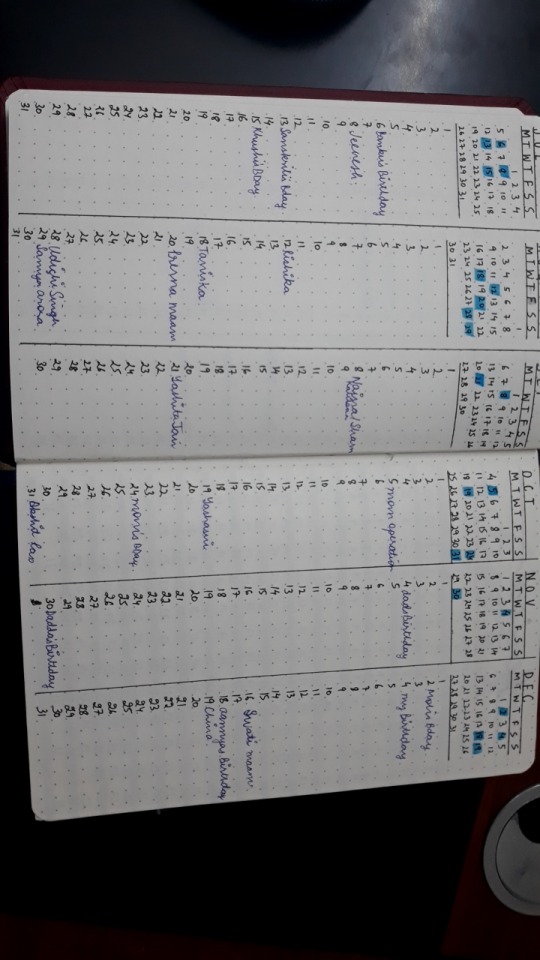 JUL
M T W T F S S
1 2 3 4
5 6 7 8 9 10 11
12 13 14 15 16 17 18
19 20 21 22 23 24 25
26 27 28 29 30 31
1
2
3
4
5
6 Banku's Birthday
7
8 Jeenesh.
9
10
11
12
13 Sanskriti's Bday
14
15 Khushi's BDay
16
17
18
19
20
21
22
23
24
25
26
27
28
29
30
31
M T W T F S S
1
2 3 4 5 6 7 8
9 10 11 12 13 14 15
16 17 18 19 20 21 22
23 24 25 26 27 28 29
30 31
1
2
3
4
5
6
7
8
9
10
11
12 Rishika
13
14
15
16
17
18 Tanishka
19
20 Prerna maam
21
22
23
24
25
26
27
28 Udichi Singh
29 Samya arora
30
31
M T W T F S S
1 2 3 4 5
6 7 8 9 10 11 12
13 14 15 16 17 18 19
20 21 22 23 24 25 26
27 28 29 30
1
2
3
4
5
6
7
8
9
10
11
12
13
14
15
16
17
18
19
20
21 Yashika Jain
22
23
24
25
26
27
28
29
30
OCT
M T W T F S S
1 2 3
4 5 6 7 8 9 10
11 12 13 14 15 16 17
18 19 20 21 22 23 24
25 26 27 28 29 30 31
1
2
3
4
5 mom operation
6
7
8
9
10
11
12
13
14
15
16
17
18
19 Yashasvi
20
21
22
23
24 mom's BDay.
25
26
27
28
29
30
31
NOV
M T W T F S S
1 2 3 4 5 6 7
8 9 10 11 12 13 14
15 16 17 18 19 20 21
22 23 24 25 26 27 28
29 30
1
2
3
4 dad's Birthday
5
6
7
8
9
10
11
12
13
14
15
16
17
18
19
20
21
22
23
24
25
26
27
28
29
30 Dadda's Birthday
DEC
M T W T F S S
1 2 3 4 5
6 7 8 9 10 11 12
13 14 15 16 17 18 19
20 21 22 23 24 25 26
27 28 29 30 31
1
2 Mori's Bday
3
4 my Birthday
5
6
7
8
9
10
11
12
13
14
15
16 Swati maam
17
18 aannya's Birthday
19 Chino
20
21
22
23
24
25
26
27
28
29
30
31